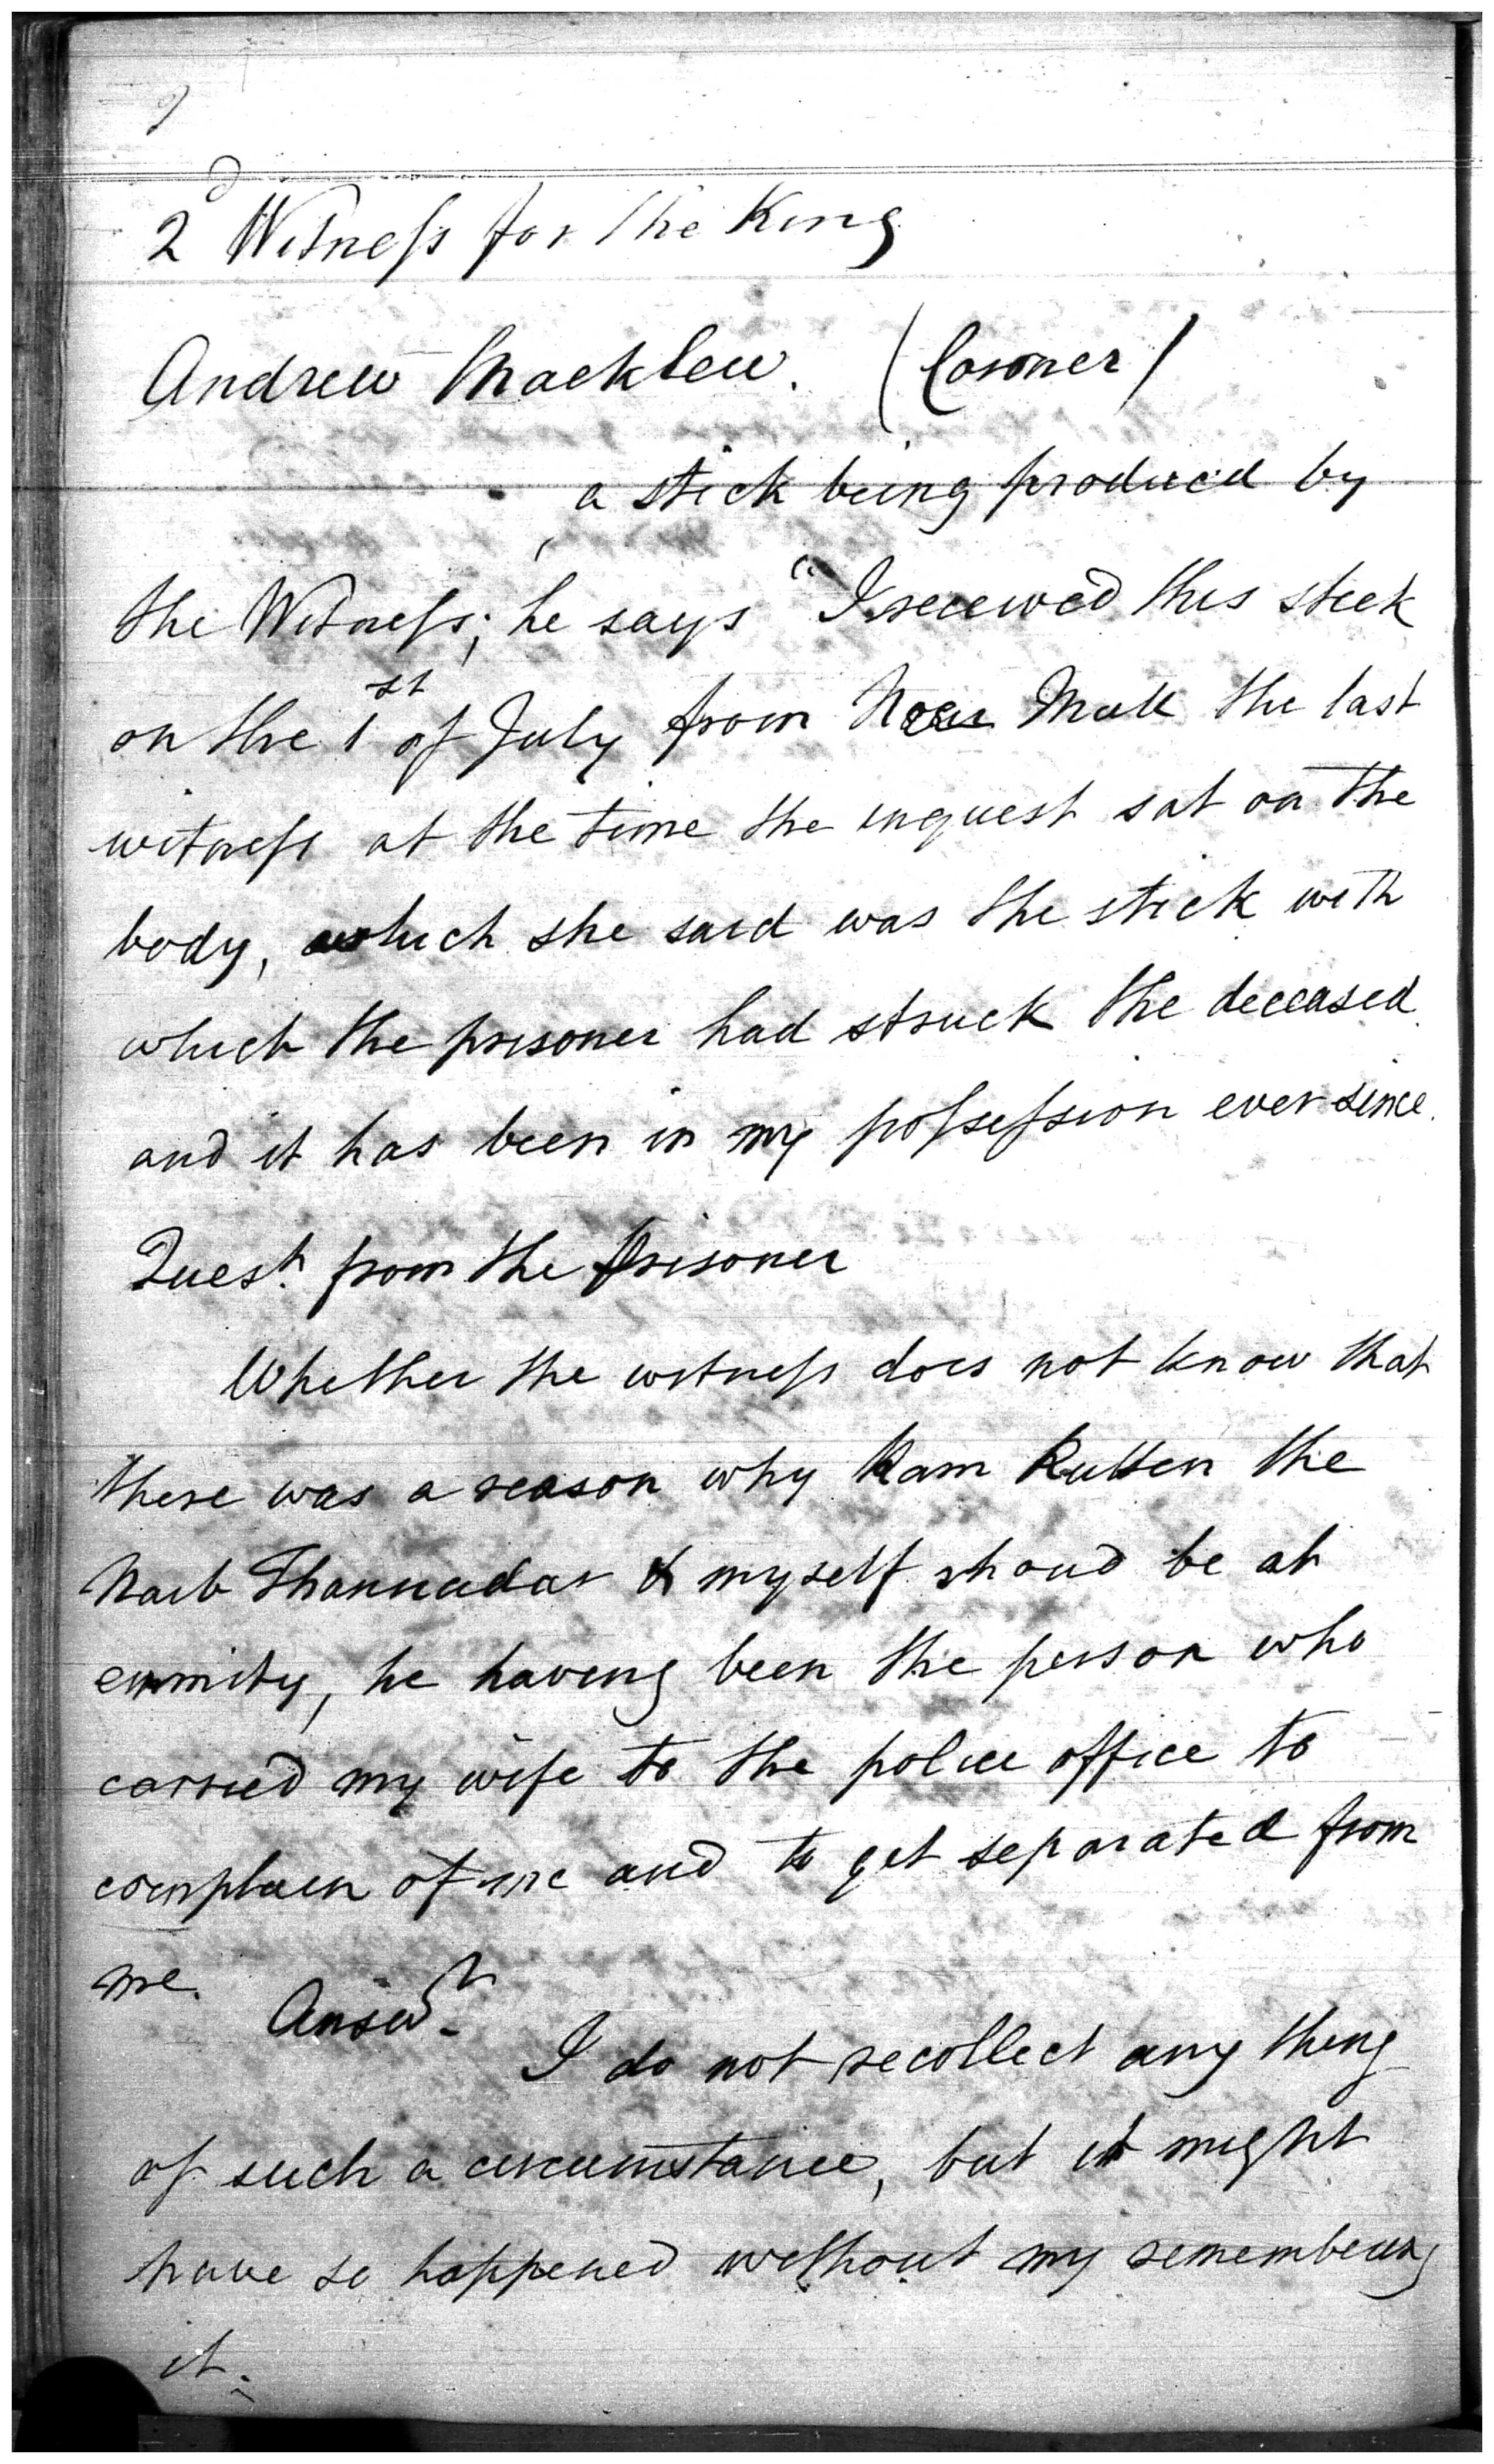 2d Witness for the King
Andrew Macklew. (Coroner)
a stick being produced by
the Witness; he says "I received this stick
on the 1st of July from Noor Mull the last
witness at the time the inquest sat on the
body, which she said was the stick with
which the prisoner had struck the deceased
and it has been in my possession ever since.
Quest. from the prisoner
Whether the witness does not know that
there was a reason why Ram Rutten the
Naib Thannadar & myself shoud be at
enmity, he having been the person who
carried my wife to the police office to
complain of me and to get separated from
me.
Answr.
I do not recollect any thing
of such a circumstance, but it might
have so happened without my remembering
it.